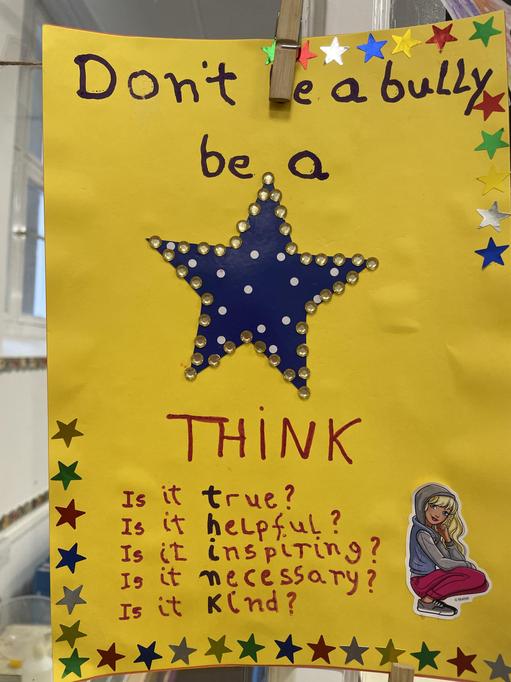 Don't e a bully
be a
THINK
Is it true?
Is it helpful?
Is it inspiring?
Is it necessary?
Is it kind?